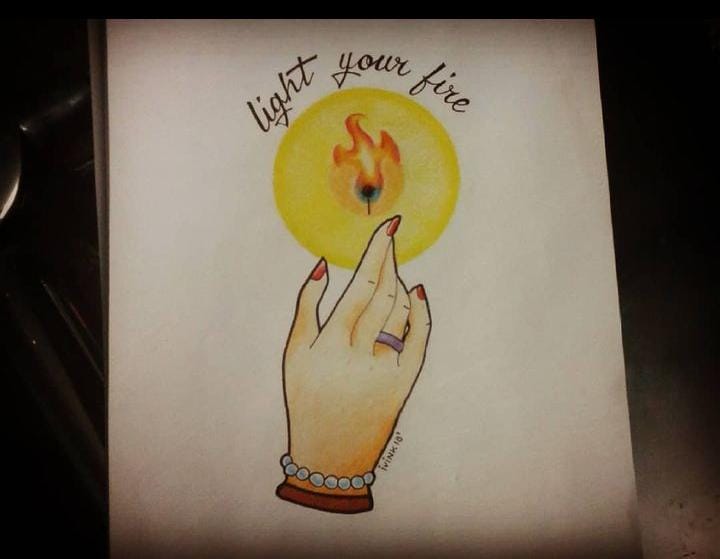 light your fire
ivink18'